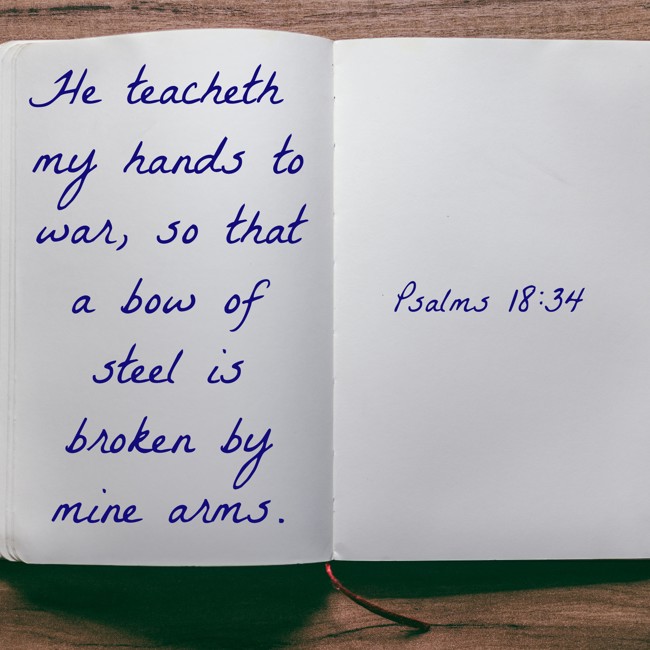 He teacheth
my hands to
war, so that
a bow of
steel is
broken by
mine arms.
Psalms 18:34